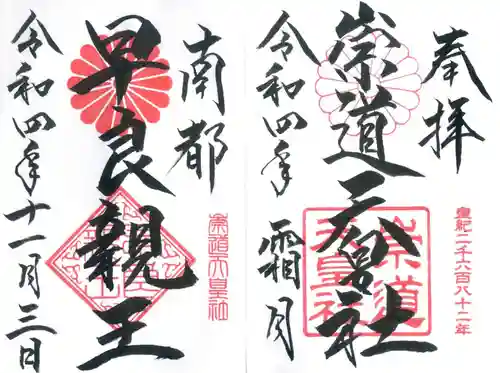 奉拝
崇道天皇社
皇紀二千六百八十二年
崇道天皇社
令和四年 霜月
南都
早良親王
崇道天皇社
令和四年十一月三日